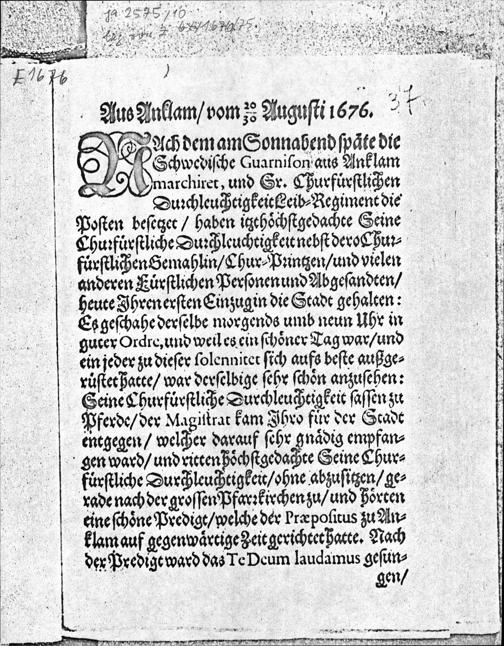 ja 2575/10
E 1676
37
Aus Anklam/ vom 20/30 Augusti 1676.
NAch dem am Sonnabend späte die
Schwedische Guarnison aus Anklam
marchiret, und Sr. Churfürstlichen
Durchleuchtigkeit Leib-Regiment die
Posten besetzet / haben itzthöchstgedachte Seine
Churfürstliche Durchleuchtigkeit nebst dero Chur-
fürstlichen Gemahlin/ Chur-Printzen/ und vielen
anderen Fürstlichen Personen und Abgesandten/
heute Jhren ersten Einzug in die Stadt gehalten:
Es geschahe derselbe morgends umb neun Uhr in
guter Ordre, und weil es ein schöner Tag war/ und
ein jeder zu dieser solennitet sich aufs beste außge-
rüstet hatte/ war derselbige sehr schön anzusehen:
Seine Churfürstliche Durchleuchtigkeit sassen zu
Pferde/ der Magistrat kam Jhro für der Stadt
entgegen/ welcher darauf sehr gnädig empfan-
gen ward/ und ritten höchstgedachte Seine Chur-
fürstliche Durchleuchtigkeit/ ohne abzusitzen/ ge-
rade nach der grossen Pfarrkirchen zu/ und hörten
eine schöne Predigt/ welche der Præpositus zu An-
klam auf gegenwärtige Zeit gerichtet hatte. Nach
der Predigt ward das Te Deum laudamus gesun-
gen/